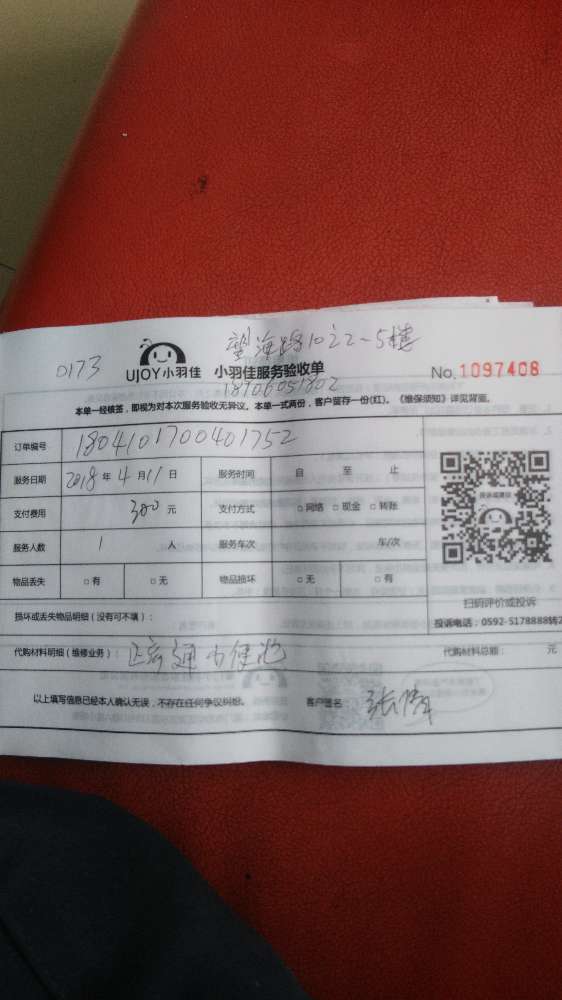 望海路10之2-5楼
0173 UJOY小羽佳 小羽佳服务验收单 No.1097408
18906051802
本单一经核签，即视为对本次服务验收无异议。本单一式两份，客户留存一份(红)。《维保须知》详见背面。
订单编号 1804101700401752
服务日期 2018年4月11日 服务时间 自 至 止
支付费用 300元 支付方式 □网络 □现金 □转账
服务人数 1 人 服务车次 车/次
物品丢失 □有 □无 物品损坏 □无 □有
扫码评价或投诉
损坏或丢失物品明细（没有可不填）：
投诉电话：0592-5178888转2
代购材料明细（维修业务）： 通 便池 代购材料总额： 元
以上填写信息已经本人确认无误，不存在任何争议纠纷。 客户签名： 张